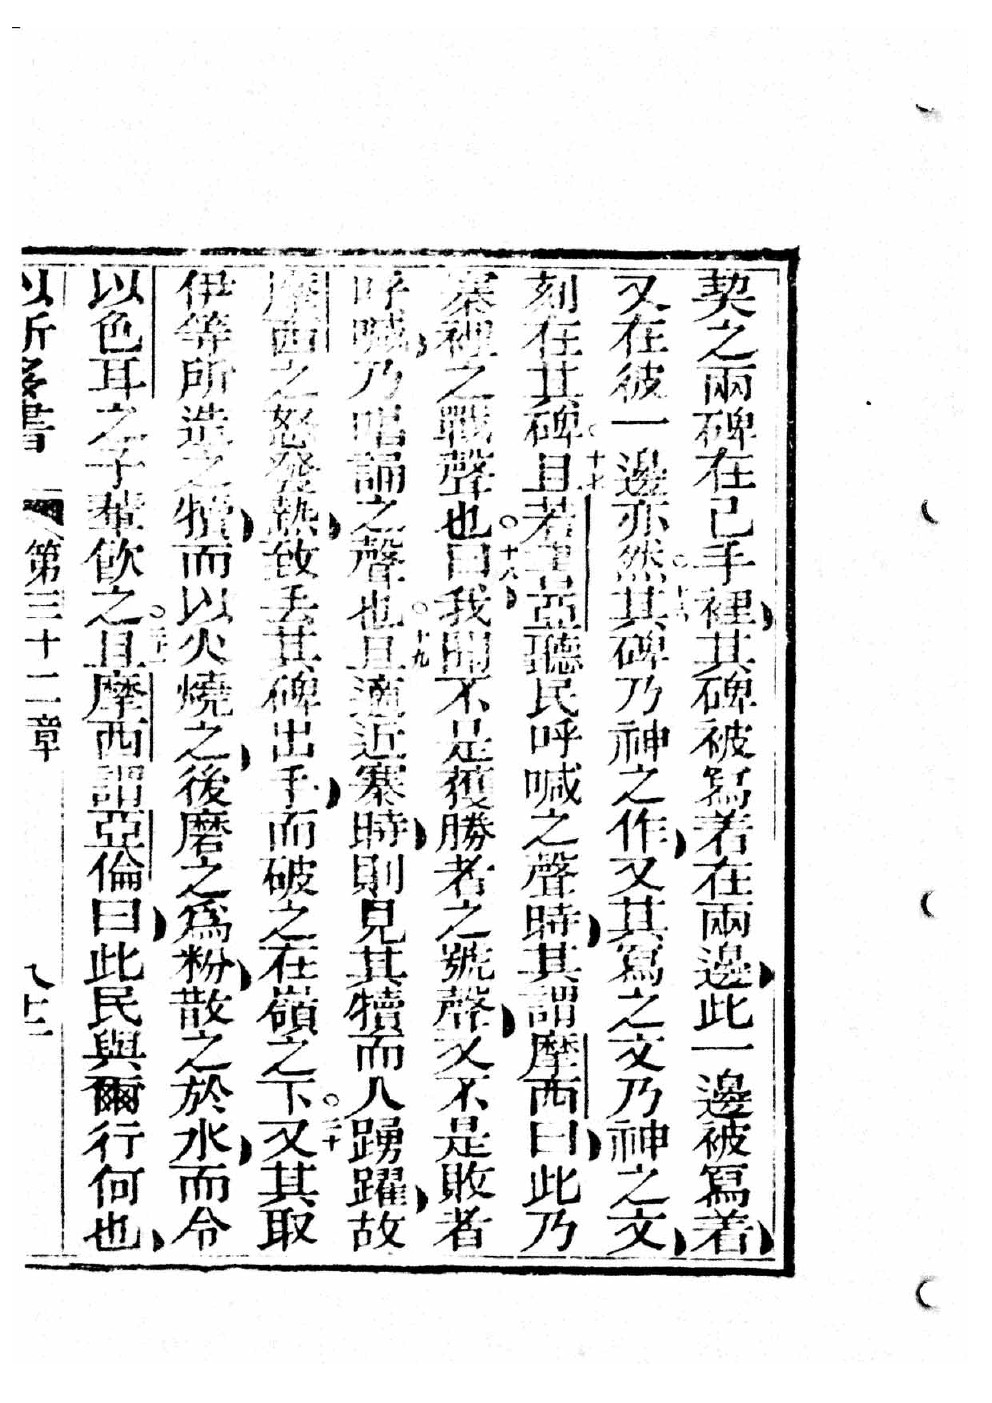 契之兩碑在己手裡其碑被寫着在兩邊此一邊被寫着
又在彼一邊亦然○十六其碑乃神之作又其寫之文乃神之文
刻在其碑○十七且若書亞聽民呼喊之聲時其謂摩西曰此乃
寨裡之戰聲也○十八曰我聞不是獲勝者之號聲又不是敗者
呼喊乃唱誦之聲也○十九且適近寨時則見其犢而人踴躍故
摩西之怒發熱致丢其碑出手而破之在嶺之下○二十又其取
伊等所造之犢而以火燒之後磨之為粉散之於水而令
以色耳之子輩飲之○二一且摩西謂亞倫曰此民與爾行何也
以所多書 第三十二章 八十一